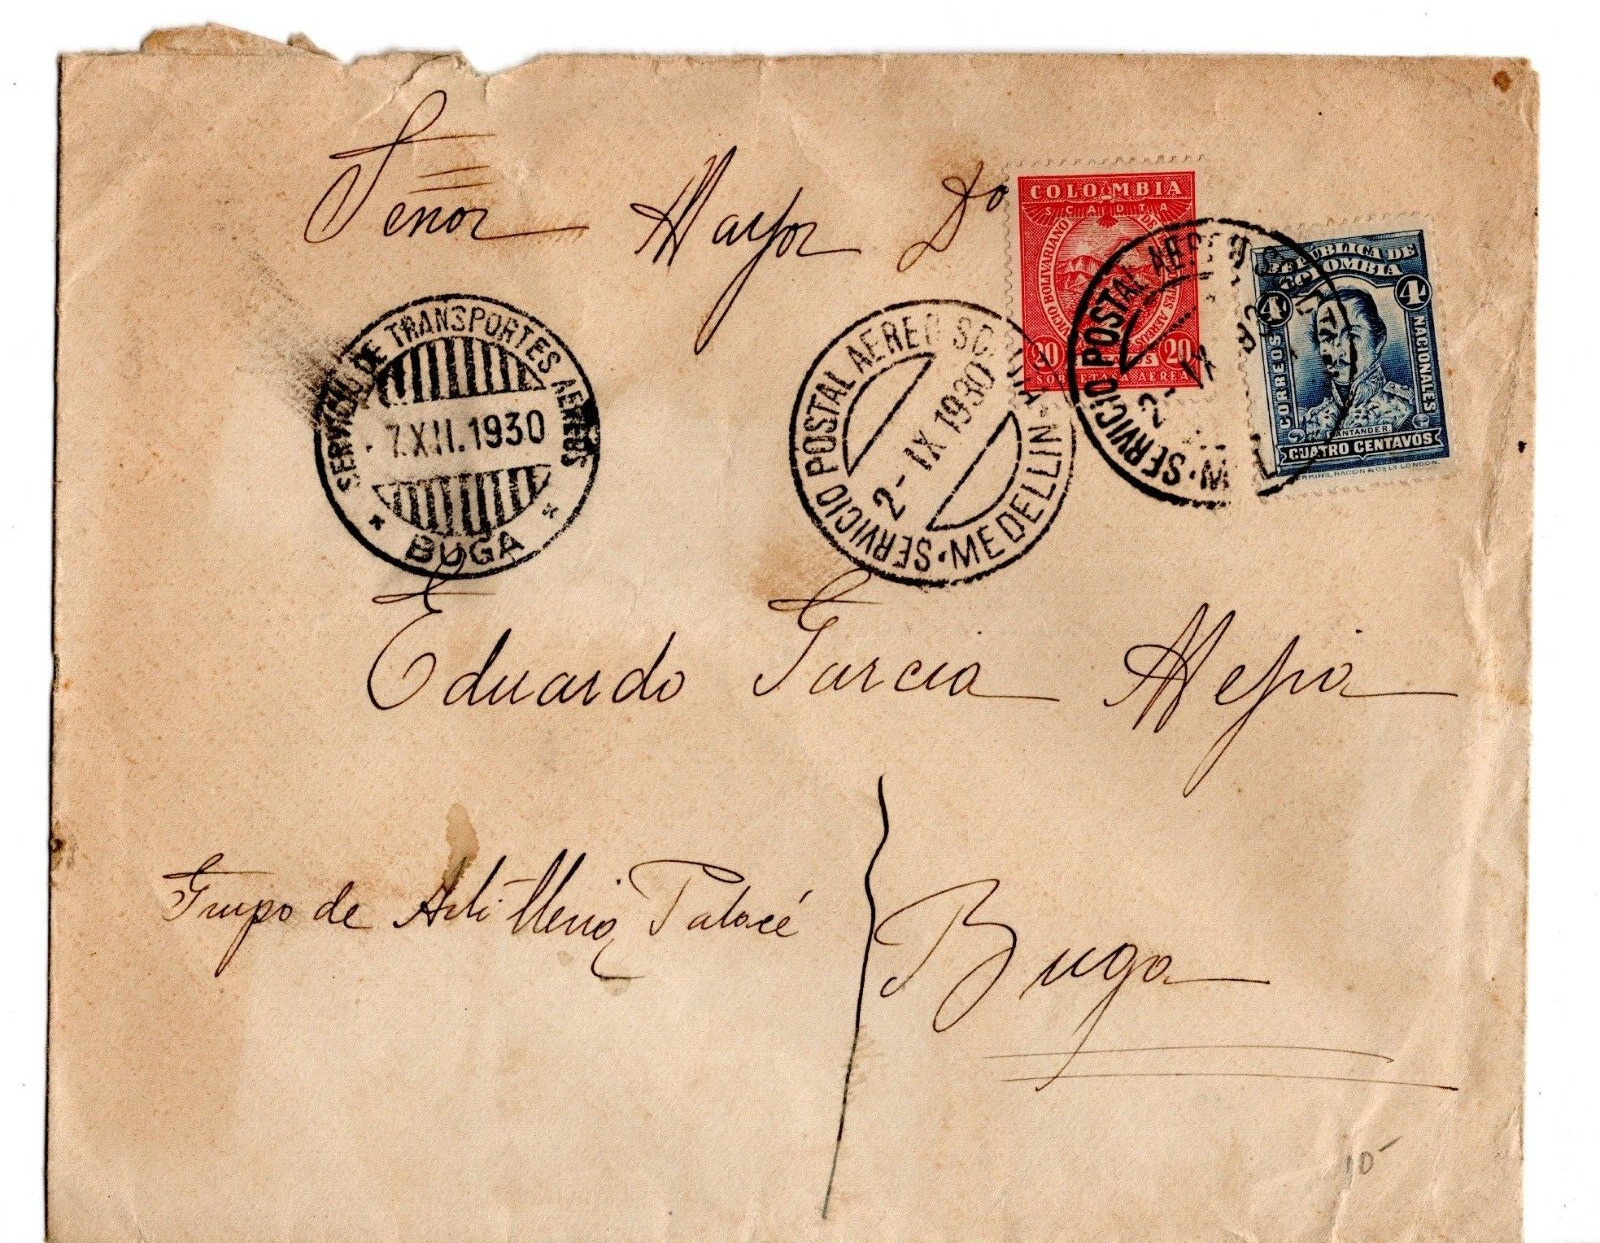 Señor Mayor Do
COLOMBIA
SCADTA
SERVICIO BOLIVARIANO DE TRANSPORTES AEREOS
20 CENTAVOS 20
SOBRETASA AEREA
REPUBLICA DE
COLOMBIA
4 4
CORREOS NACIONALES
SANTANDER
CUATRO CENTAVOS
PERKINS, BACON & CO LD LONDON.
SERVICIO DE TRANSPORTES AEREOS
7.XII.1930
* BUGA *
SERVICIO POSTAL AEREO SCADTA
2-IX 1930
MEDELLIN
SERVICIO POSTAL AEREO
2-IX
Eduardo Garcia Mejia
Grupo de Artilleria Palacé
Buga
10-